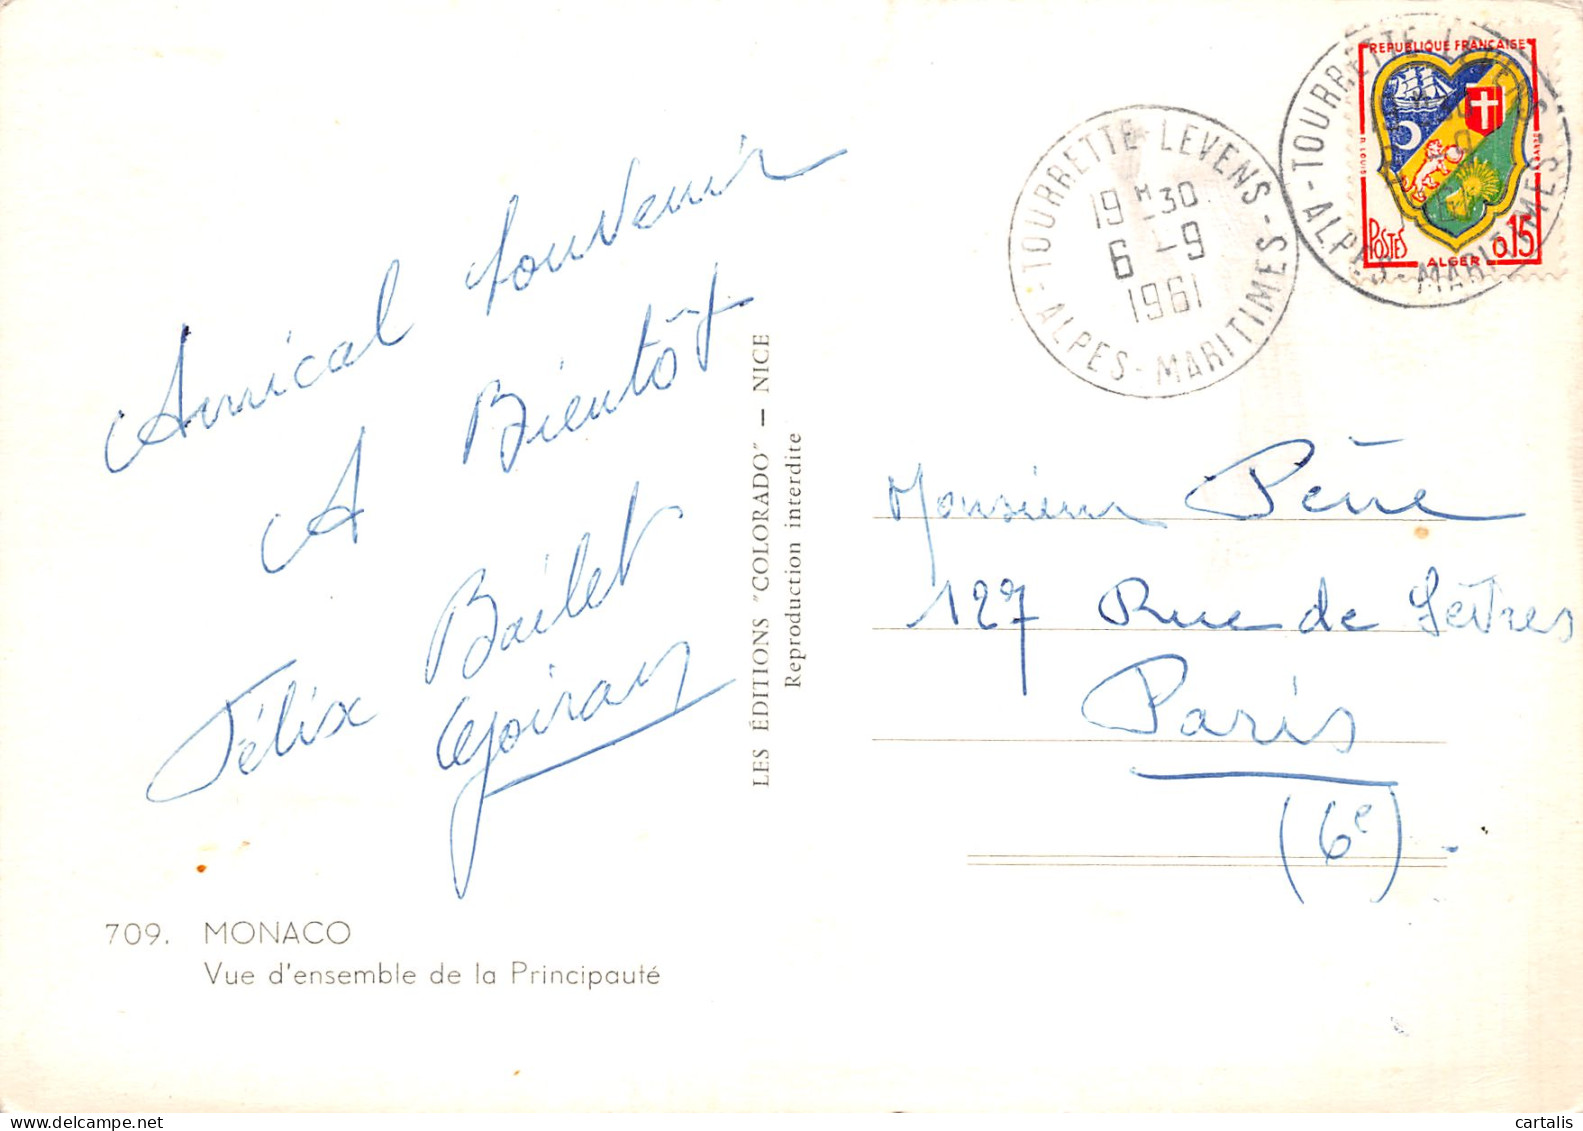 Amical souvenir
A Bientôt
Félix Bailet
709. MONACO
Vue d'ensemble de la Principauté
LES ÉDITIONS "COLORADO" — NICE
Reproduction interdite
TOURRETTE-LEVENS
19 H 30
6 -9
1961
ALPES-MARITIMES
TOURRETTE-LEVENS
ALPES-MARITIMES
REPUBLIQUE FRANÇAISE
POSTES
ALGER
0,15
Monsieur Père
127 Rue de Sèvres
Paris
(6e)
cartalis